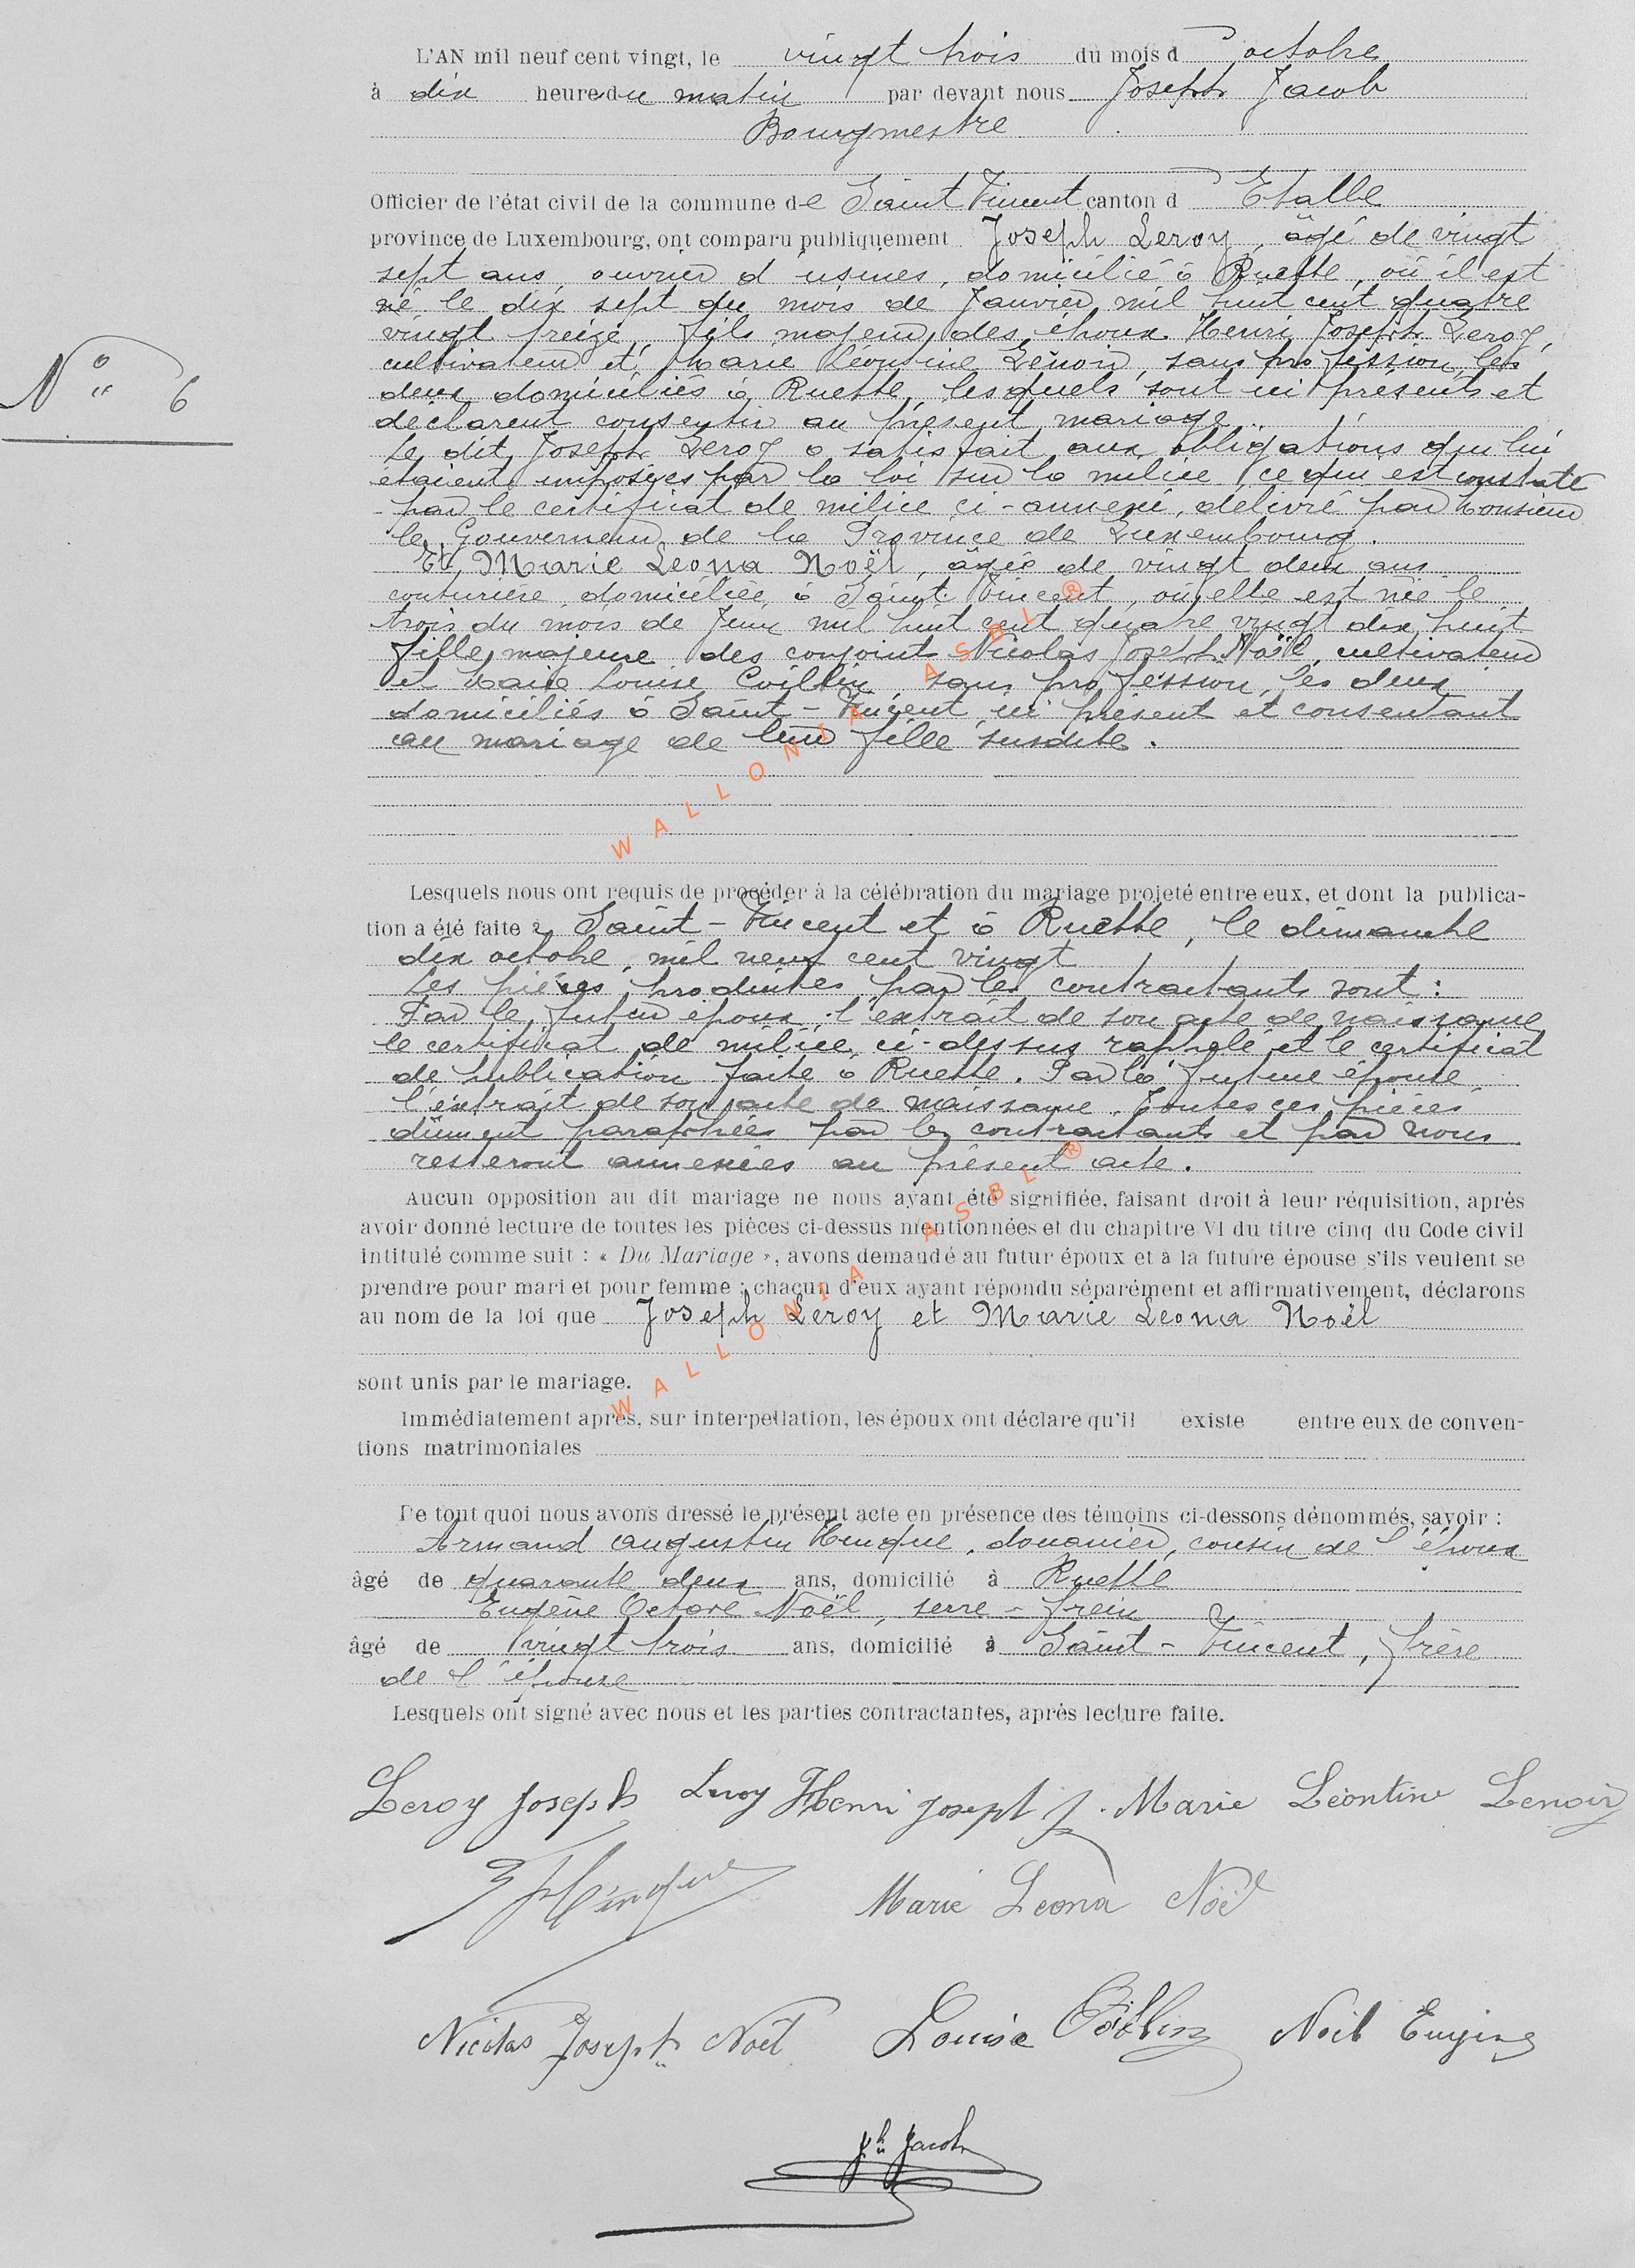 L'AN mil neuf cent vingt, le vingt trois du mois d'octobre
à dix heure du matin par devant nous Joseph Jacob
Bourgmestre
Officier de l'état civil de la commune de Saint Vincent canton d'Etalle
province de Luxembourg, ont comparu publiquement Joseph Leroy, âgé de vingt
sept ans, ouvrier d'usines, domicilié à Ruette, où il est
né le dix sept du mois de Janvier mil huit cent quatre
vingt treize, fils majeur des époux Henri Joseph Leroy,
cultivateur et Marie Léontine Lenoir, sans profession, les
deux domiciliés à Ruette, lesquels sont ici présents et
déclarent consentir au présent mariage.
N° 6
Le dit Joseph Leroy a satisfait aux obligations qui lui
étaient imposées par la loi sur la milice, ce qui est constaté
par le certificat de milice ci-annexé, délivré par Monsieur
le Gouverneur de la Province de Luxembourg.
Et, Marie Leona Noël, âgée de vingt deux ans
couturière, domiciliée à Saint Vincent, où elle est née le
trois du mois de Juin mil huit cent quatre vingt dix huit
fille majeure des conjoint Nicolas Joseph Noël, cultivateur
et Marie Louise Coillin, sans profession, les deux
domiciliés à Saint-Vincent, ici présent et consentant
au mariage de leur fille susdite.
WALLONIA ASBL ®
Lesquels nous ont requis de procéder à la célébration du mariage projeté entre eux, et dont la publica-
tion a été faite à Saint-Vincent et à Ruette, le dimanche
dix octobre, mil neuf cent vingt
Les pièces produites par les contractants sont :
Par le futur époux, l'extrait de son acte de naissance
le certificat de milice, ci-dessus rappelé et le certificat
de publication faite à Ruette. Par la future épouse
l'extrait de son acte de naissance. Toutes ces pièces
dûment paraphées par les contractants et par nous
resteront annexées au présent acte.
Aucun opposition au dit mariage ne nous ayant été signifiée, faisant droit à leur réquisition, après
avoir donné lecture de toutes les pièces ci-dessus mentionnées et du chapitre VI du titre cinq du Code civil
intitulé comme suit : « Du Mariage », avons demandé au futur époux et à la future épouse s'ils veulent se
prendre pour mari et pour femme ; chacun d'eux ayant répondu séparément et affirmativement, déclarons
au nom de la loi que Joseph Leroy et Marie Leona Noël
sont unis par le mariage.
WALLONIA ASBL ®
Immédiatement après, sur interpellation, les époux ont déclare qu'il existe entre eux de conven-
tions matrimoniales
De tout quoi nous avons dressé le présent acte en présence des témoins ci-dessons dénommés, savoir :
Armand Augustin Henque, douanier, cousin de l'époux
âgé de quarante deux ans, domicilié à Ruette
Eugène Octave Noël, serre-frein
âgé de vingt trois ans, domicilié à Saint-Vincent, frère
de l'épouse
Lesquels ont signé avec nous et les parties contractantes, après lecture faite.
Leroy Joseph Leroy Henri Joseph J. Marie Léontine Lenoir
Marie Leona Noël
Nicolas Joseph Noël Louise Coillin Noël Eugène
Jh Jacob